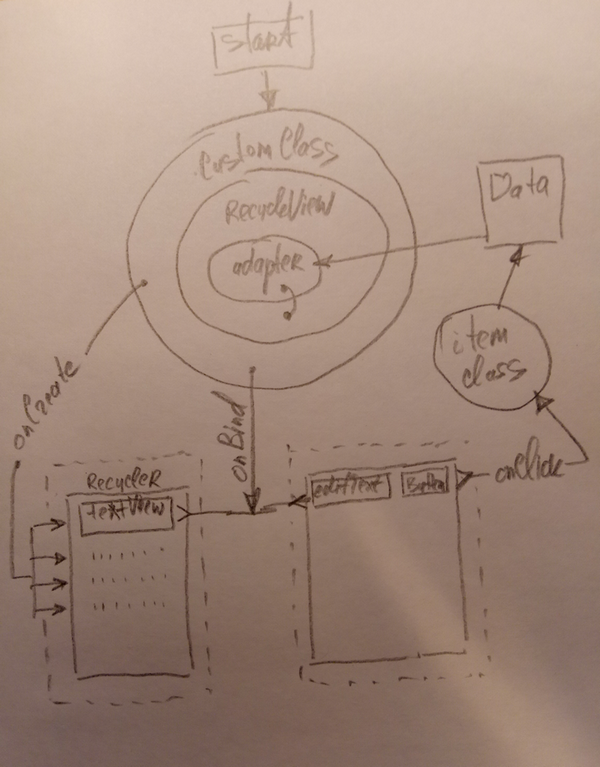 start
CustomClass
RecycleView
adapter
Data
item
class
onCreate
onBind
RecycleR
textView
editText
Button
onClick